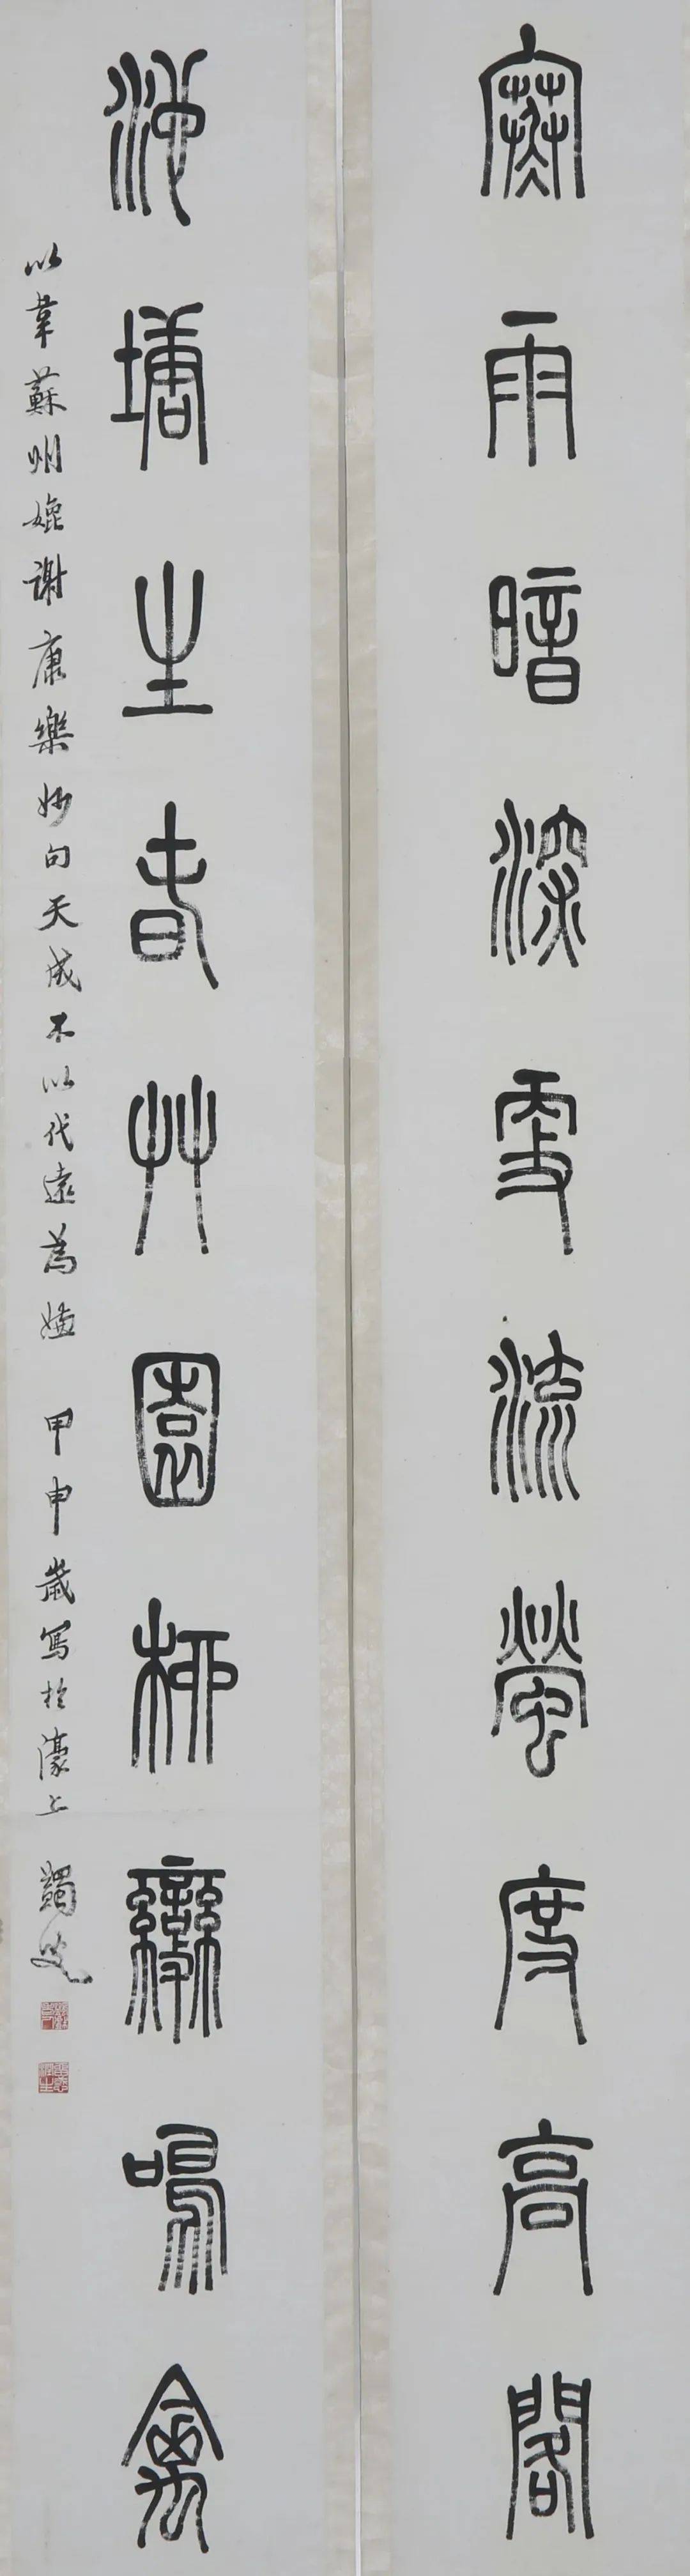 寒雨暗深更流螢度高閣
池塘生春艸園柳變鳴禽
以韋蘇州媲謝康樂妙句天成不以代遠為嫌 甲申歲寫於濠上 蠲叟